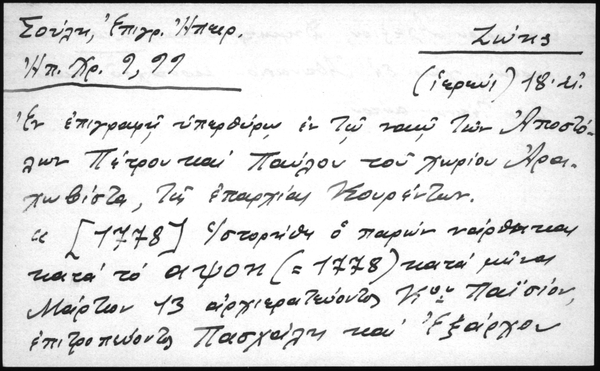 Σούλη, Ἐπιγρ. Ἠπειρ.
Ζώης
Ἠπ. Χρ. 9, 99
(ἱερεύς) 18. αἰ.
Ἐν ἐπιγραφῇ ὑπερθύρῳ ἐν τῷ ναῷ τῶν Ἀποστό-
λων Πέτρου καὶ Παύλου τοῦ χωρίου Ἀρα-
χωβίστα, τῆς ἐπαρχίας Κουρέντων.
« [1778] ἱστορήθη ὁ παρὼν νάρθηκας
κατὰ τὸ αψοη (= 1778) κατὰ μῆνα
Μάρτιον 13 ἀρχιερατεύοντος Κου Παϊσίου,
ἐπιτροπεύοντος Πασχάλη καὶ Ἐξάρχου